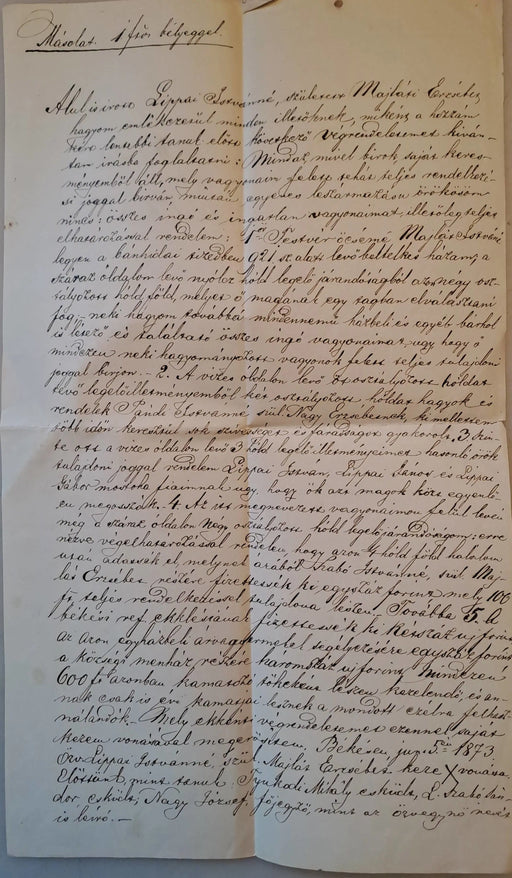 Másolat. 1 fros bélyeggel.
Alulis irott Lippai Istvánné, született Majláti Erzsébet,
hagyom emlékezetül minden illetőknek, miként a hozzám
kért lentebbi tanuk előtt következő végrendeletemet kíván-
tam irásba foglaltatni: Mindaz mivel birok, saját keres-
ményemből állt, mely vagyonaim felett tehát teljes rendelkezé-
si joggal birván, miután egyenes leszármazásu örökösöm
nincs: összes ingó és ingatlan vagyonaimat, illetőleg teljes
elhatározással rendelem: 1ször Testvér öcsémé Majláti Istváné
legyen a bánhidai tizedben 921 sz alatt levő beltelkes házam, a
száraz oldalom levő nyolcz hold legelő járandóságból azon négy osz-
tályozott hold föld, melyet ő magának egy tagban elválasztani
fog,– neki hagyom továbbá mindennemü házbeli és egyéb bárhol
is létező és található összes ingó vagyonaimat, ugy hogy ő
mindezen neki hagyományozott vagyonok felett teljes tulajdoni
joggal birjon. – 2. A vizes oldalon levő öt osztályozott holdat
tevő legelőilletményemből két osztályozott holdat hagyok és
rendelek Istvánné szül. Nagy Erzsébetnek ki mellettem
több időn keresztül sok szivességet és fáradságot gyakorolt, 3 Szin-
te ott a vizes oldalon levő 3 hold legelő illetményeimet hasonló örök
tulajdoni joggal rendelem Lippai István, Lippai János és Lippai
Gábor mostoha fiaimnak ugy, hogy ők azt magok közt egyenlő-
en megosszák. – 4. Az itt megnevezett vagyonaimon felül levén
még a száraz oldalon négy osztályozott hold legelőjárandóságom; erre
nézve végelhatározással rendelem, hogy azon 4 hold föld halálom
után adassék el, melynek árából Szabó Istvánné, szül. Maj-
láti Erzsébet részére fizettessék ki egyszáz forint mely 100
ft. teljes rendelkezéssel tulajdona lészen. Továbbá 5. A
békési ref. ekklésiának fizettessék ki kétszáz uj forint
Az azon egyházbeli árvagyermekek segélyezésére egyszáz forint
a községi menház részére háromszáz uj forint. Mindezen
600 ft azonban kamatozó tőkeként lészen kezelendő, és an-
nak csak is évi kamatjai lesznek a mondott czélra felhasz-
nálandók. – Mely ekként végrendeletemet ezennel saját
kezem vonásával megerősitem, Békésen jun. 5én 1873
Özv. Lippai Istvánné, szül. Majláti Erzsébet keze X vonása.
Előttünk mint tanuk. Mihály esküdt, L. Szabó Sán-
dor, esküdt, Nagy József főjegyző, mint az özvegynő nevét
is leiró. –